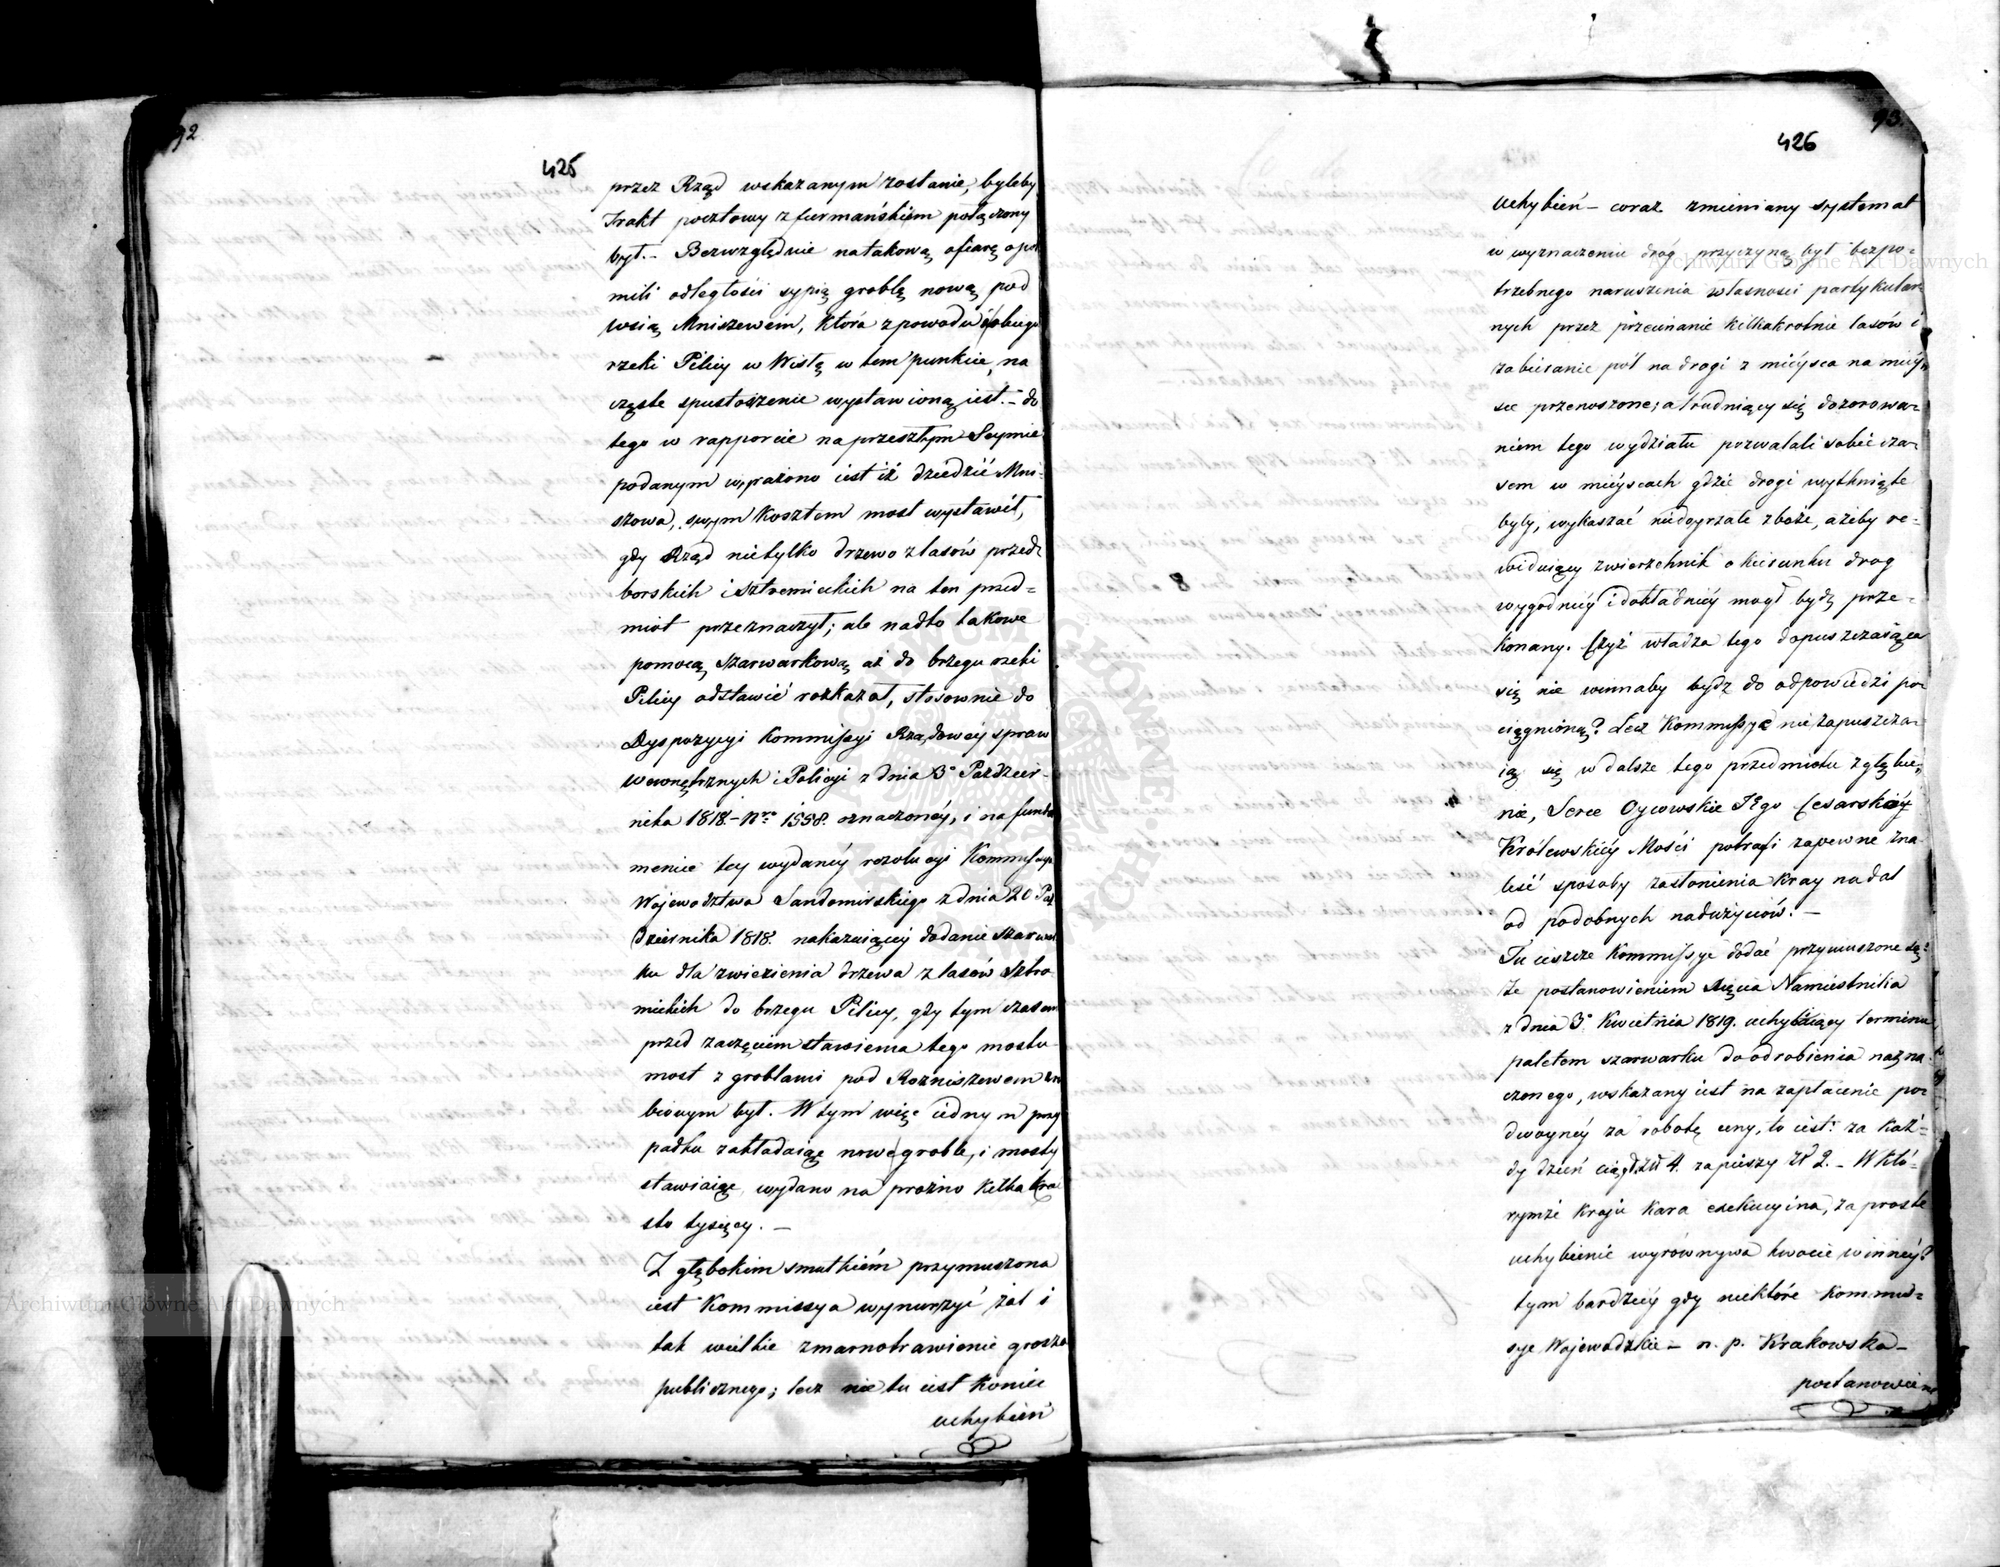 92
425
przez Rząd wskazanym zostanie, byleby
Trakt pocztowy z furmańskiem połączony
był. – Bezwzględnie na takową ofiarę o pół
mili odległości sypią groblę nową pod
wsią Mniszewem, która z powodu
rzeki Pilicy w Wisłę w tem punkcie, na
częste spustoszenie wystawioną iest. – do
tego w rapporcie na przeszłym Seymie
podanym wyrażono iest iż dziedzic Mni-
szewa, swym kosztem most wystawił,
gdy Rząd nietylko drzewo z lasów przed-
borskich i Sztromieckich na ten przed-
miot przeznaczył; ale nadto takowe
pomocą szarwarkową aż do brzegu rzeki
Pilicy odstawić rozkazał, stosownie do
Dyspozycyi Kommissyi Rządowéy spraw
wewnętrznych i Policyi z dnia 3° Paździer-
nika 1818. – Nro 1558. oznaczonéy, i na funda
mencie tey wydanéy rezolucyi Kommissyi
Województwa Sandomirskiego z dnia 20 Paź
dziernika 1818. nakazuiącéy dodanie szarwar
ku dla zwiezienia drzewa z lasów Sztro
mieckich do brzegu Pilicy, gdy tym czasem
przed zaczęciem stawienia tego mostu
most z groblami pod Rozniszewem zro
bionym był. W tym więc iednym przy
padku zakładaiąc nowe groble, i mosty
stawiaiąc, wydano na prożno kilka kroć
sto tysięcy. –
Z głębokim smutkiem przymuszona
iest Kommissya wynurzyć żal i
tak wielkie zmarnotrawienie grosza
publicznego; lecz nie tu iest koniec
uchybień
93.
426
uchybień – coraz zmieniany systemat
w wyznaczeniu dróg przyczyną był bezpo-
trzebnego naruszenia własności partykular
nych przez przecinanie kilkakrotnie lasów i
zabieranie pól na drogi z mieysca na miéy
sce przenoszone; a trudniący się dozorowa-
niem tego wydziału pozwalali sobie cza-
sem w mieyscach gdzie drogi wytknięte
były, wykaszać niedoyrzałe zboże, ażeby re-
widuiący zwierzchnik o kierunku drog
wygodniéy i dokładniéy mogł bydź prze-
konany. Czyż władza tego dopuszczaiąca
się nie winnaby bydź do odpowiedzi po
ciągnioną? Lecz Kommissye nie zapuszcza-
iąc się w dalsze tego przedmiotu zgłębie-
nie, Serce Oycowskie Jego Cesarskiéy
Królewskiéy Mości potrafi zapewne zna
leść sposoby zasłonienia kray nadal
od podobnych nadużyciów. –
Tu ieszcze Kommissye dodać przymuszone są:
że postanowieniem Xięcia Namiestnika
z dnia 3° Kwietnia 1819. uchybiaiący terminu
paletem szarwarku do odrobienia nazna
czonego, wskazany iest na zapłacenie po
dwoynéy za robotę ceny, to iest: za każ-
dy dzień ciągły Złł 4. za pieszy Złł 2. – W któ-
rymże kraju kara exekucyina, za proste
uchybienie wyrównywa kwocie winnéy?
tym bardziéy gdy niektóre Kommis-
sye Wojewódzkie – n. p. Krakowska –
postanowienie
Archiwum Główne Akt Dawnych
Archiwum Główne Akt Dawnych